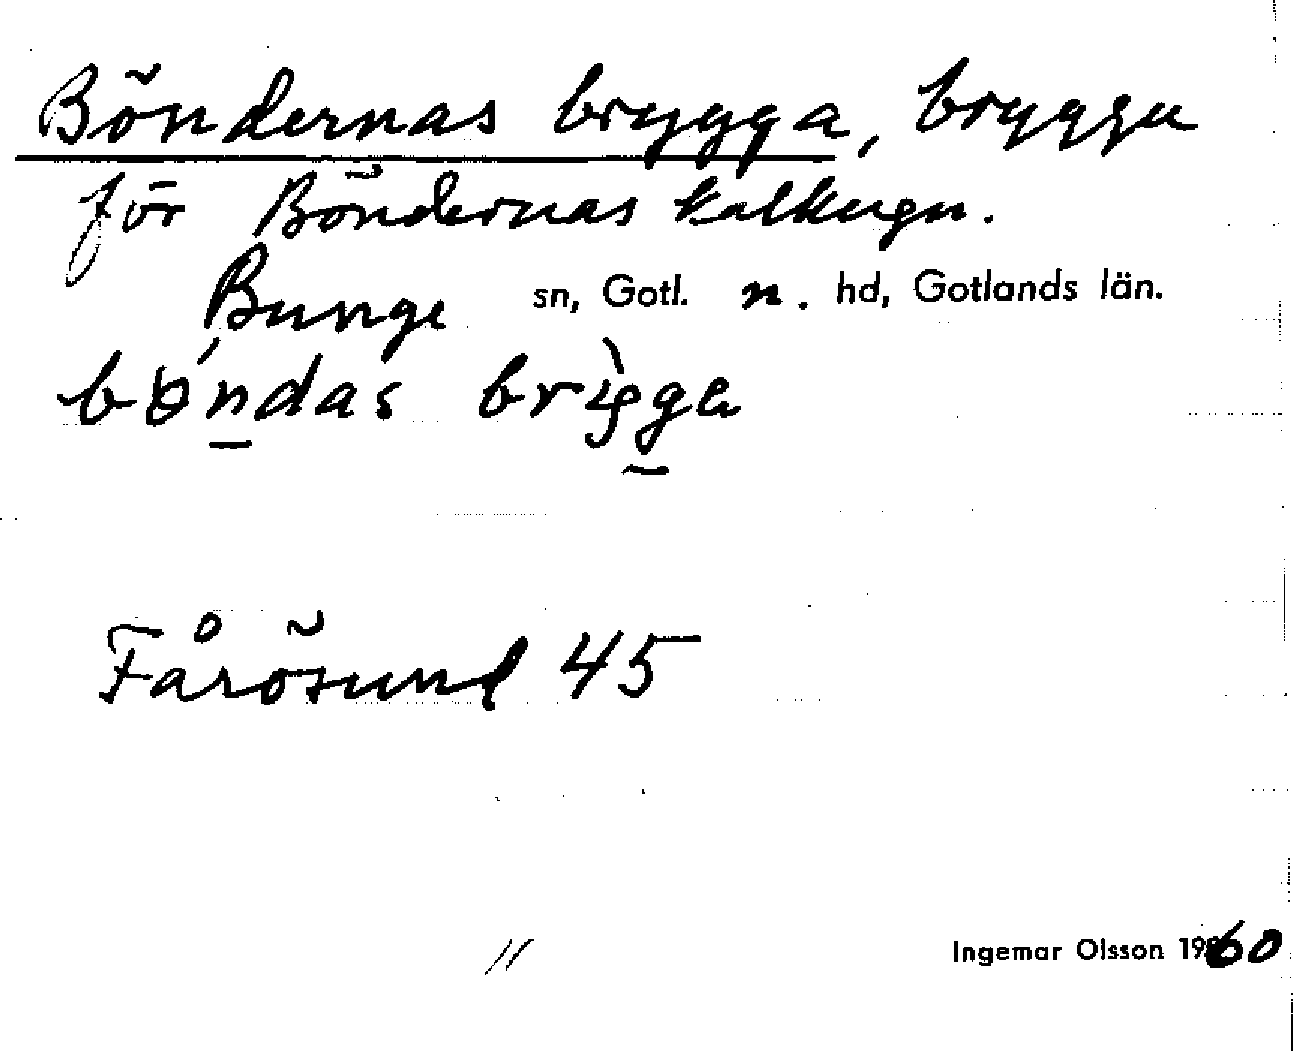 Böndernas brygga, brygga
för Böndernas kalkugn.
Bunge sn, Gotl. n. hd, Gotlands län.
böndas brigga
Fårösund 45
Ingemar Olsson 1960